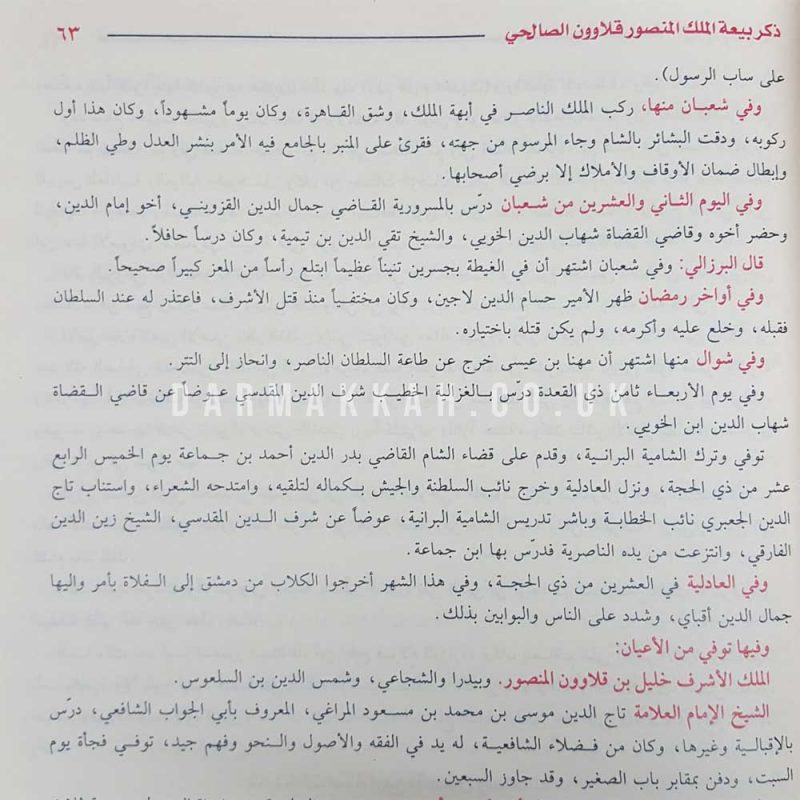 ذكر بيعة الملك المنصور قلاوون الصالحي ٦٣
على ساب الرسول).
وفي شعبان منها، ركب الملك الناصر في أبهة الملك، وشق القاهرة، وكان يوماً مشهوداً، وكان هذا أول
ركوبه، ودقت البشائر بالشام وجاء المرسوم من جهته، فقرئ على المنبر بالجامع فيه الأمر بنشر العدل وطي الظلم،
وإبطال ضمان الأوقاف والأملاك إلا برضي أصحابها.
وفي اليوم الثاني والعشرين من شعبان درّس بالمسرورية القاضي جمال الدين القزويني، أخو إمام الدين،
وحضر أخوه وقاضي القضاة شهاب الدين الخويي، والشيخ تقي الدين بن تيمية، وكان درساً حافلاً.
قال البرزالي: وفي شعبان اشتهر أن في الغيطة بجسرين تنيناً عظيماً ابتلع رأساً من المعز كبيراً صحيحاً.
وفي أواخر رمضان ظهر الأمير حسام الدين لاجين، وكان مختفياً منذ قتل الأشرف، فاعتذر له عند السلطان
فقبله، وخلع عليه وأكرمه، ولم يكن قتله باختياره.
وفي شوال منها اشتهر أن مهنا بن عيسى خرج عن طاعة السلطان الناصر، وانحاز إلى التتر.
وفي يوم الأربعاء ثامن ذي القعدة درّس بالغزالية الخطيب شرف الدين المقدسي عوضاً عن قاضي القضاة
DARMAKKAH.CO.UK
شهاب الدين ابن الخويي.
توفي وترك الشامية البرانية، وقدم على قضاء الشام القاضي بدر الدين أحمد بن جماعة يوم الخميس الرابع
عشر من ذي الحجة، ونزل العادلية وخرج نائب السلطنة والجيش بكماله لتلقيه، وامتدحه الشعراء، واستناب تاج
الدين الجعبري نائب الخطابة وباشر تدريس الشامية البرانية، عوضاً عن شرف الدين المقدسي، الشيخ زين الدين
الفارقي، وانتزعت من يده الناصرية فدرّس بها ابن جماعة.
وفي العادلية في العشرين من ذي الحجة، وفي هذا الشهر أخرجوا الكلاب من دمشق إلى الفلاة بأمر واليها
جمال الدين أقباي، وشدد على الناس والبوابين بذلك.
وفيها توفي من الأعيان:
الملك الأشرف خليل بن قلاوون المنصور. وبيدرا والشجاعي، وشمس الدين بن السلعوس.
الشيخ الإمام العلامة تاج الدين موسى بن محمد بن مسعود المراغي، المعروف بأبي الجواب الشافعي، درس
بالإقبالية وغيرها، وكان من فضلاء الشافعية، له يد في الفقه والأصول والنحو وفهم جيد، توفي فجأة يوم
السبت، ودفن بمقابر باب الصغير، وقد جاوز السبعين.